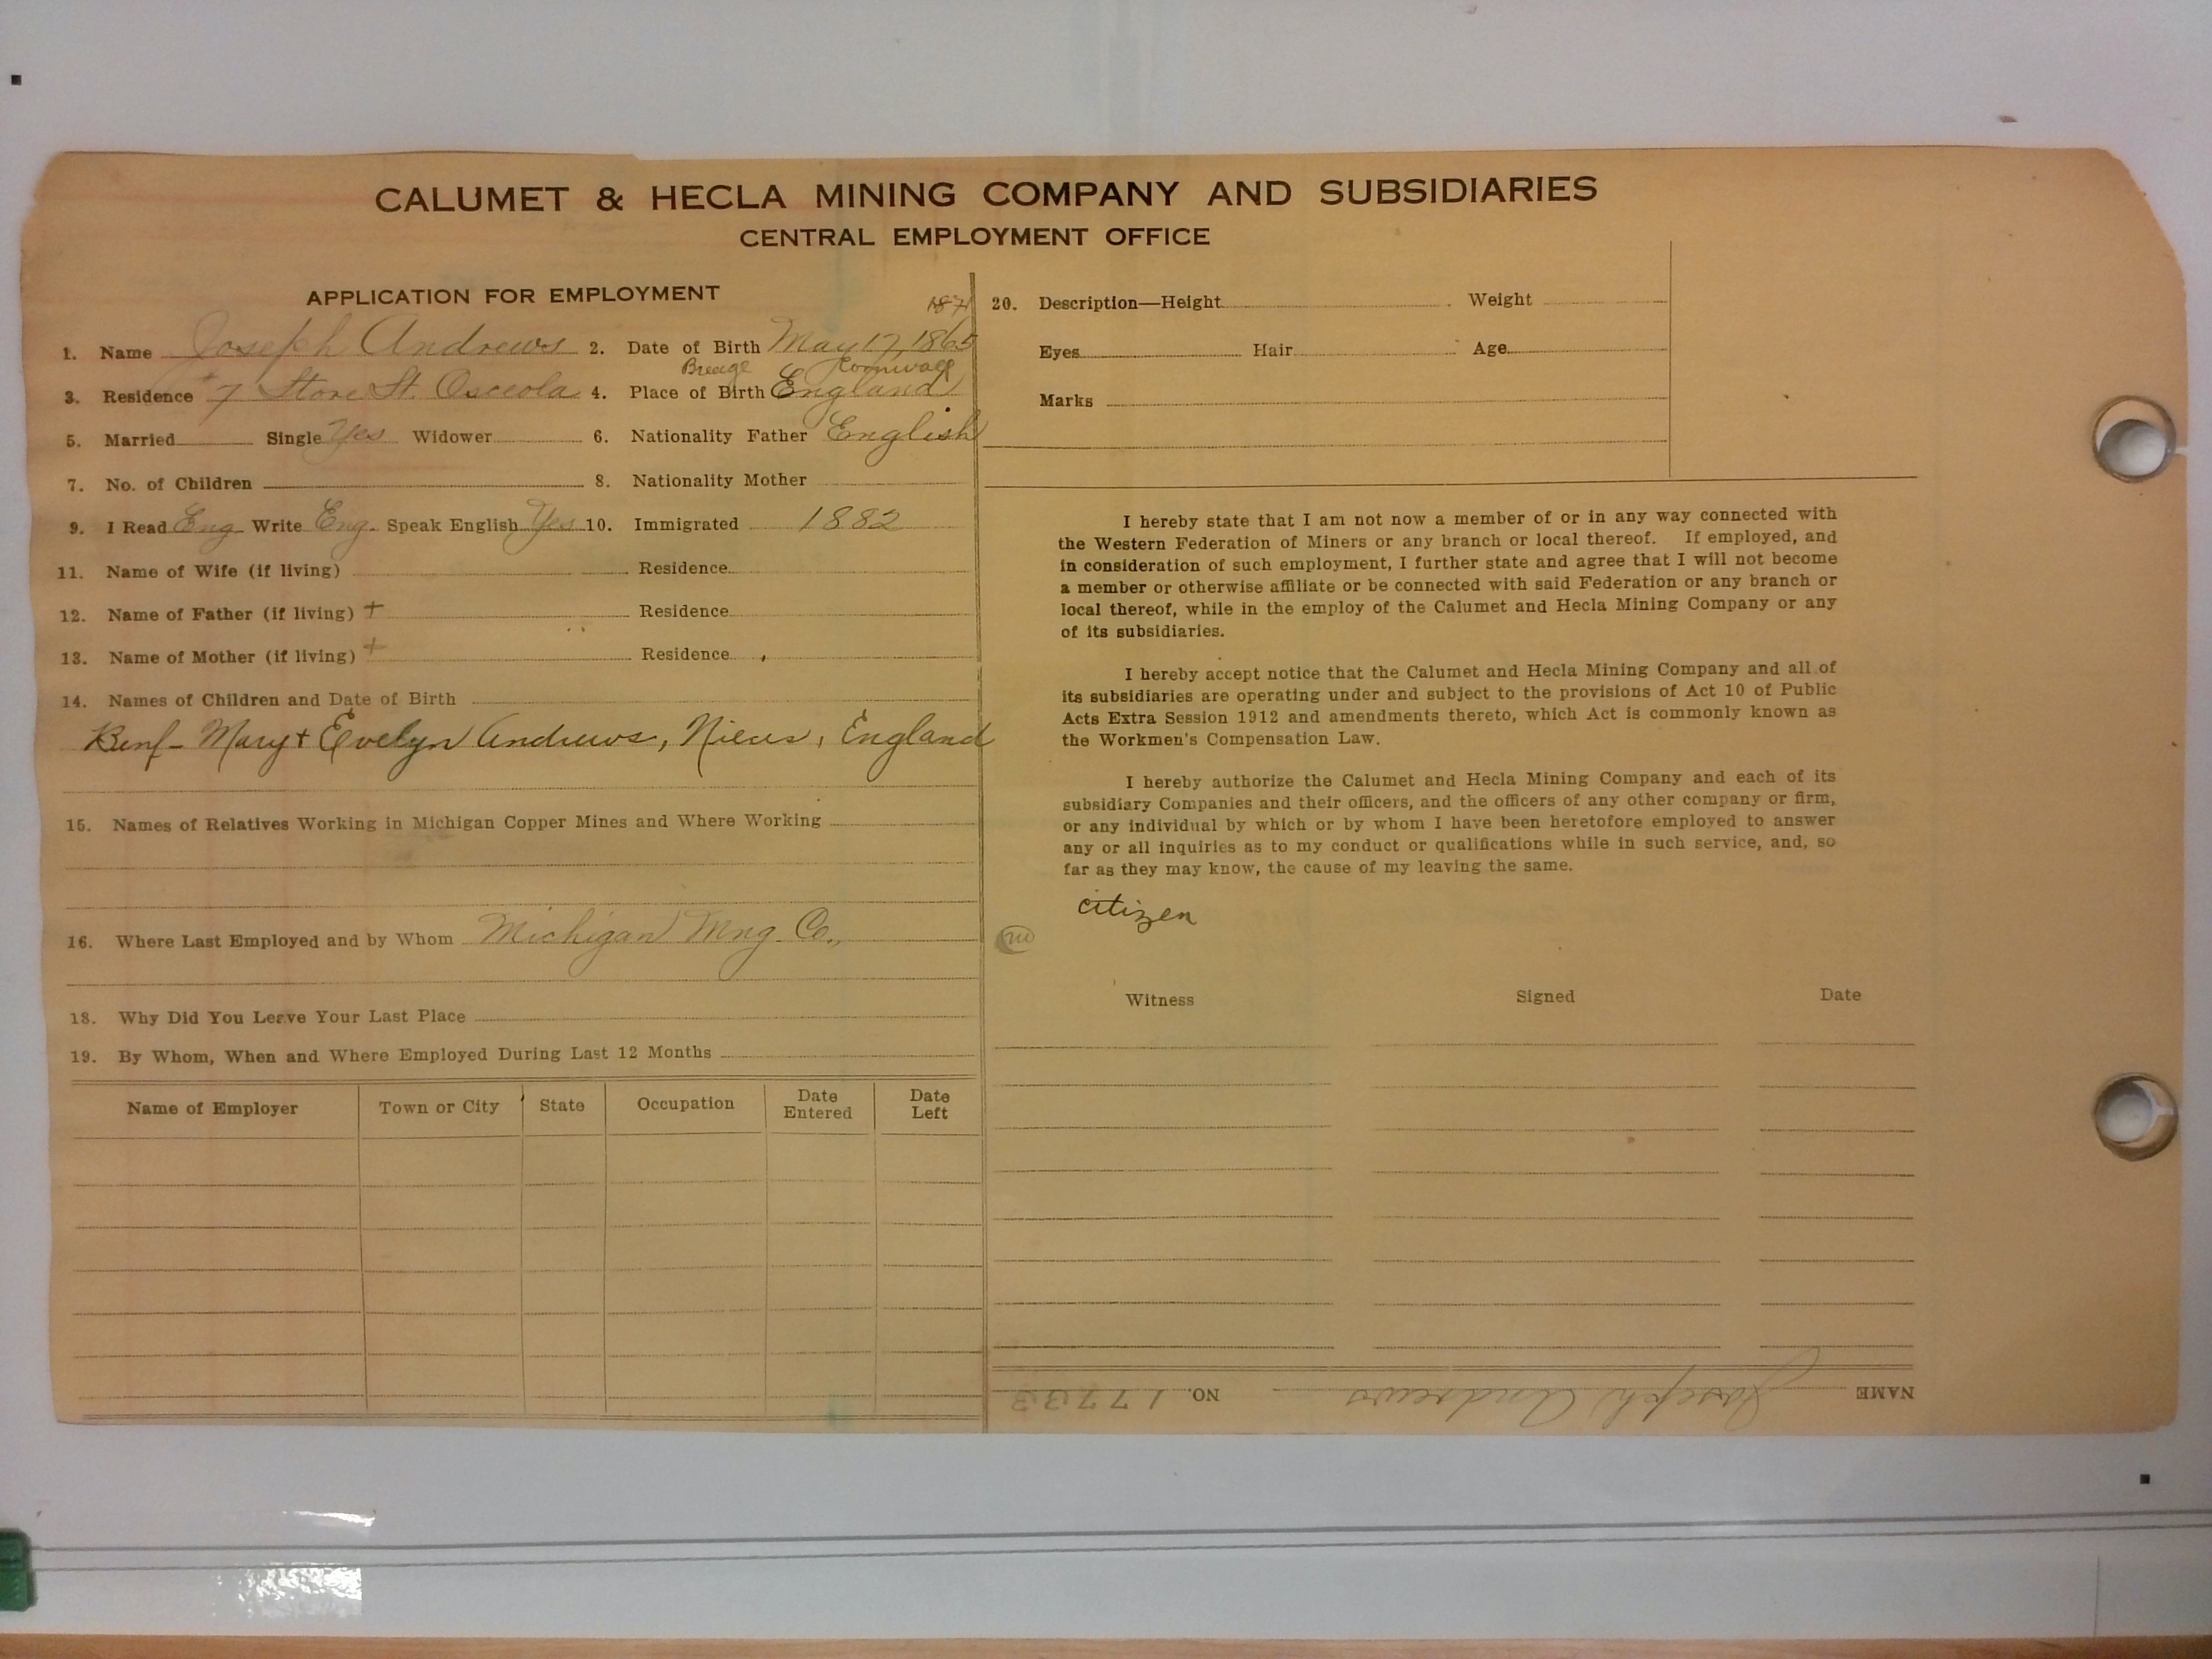 CALUMET & HECLA MINING COMPANY AND SUBSIDIARIES
CENTRAL EMPLOYMENT OFFICE
APPLICATION FOR EMPLOYMENT
1. Name Joseph Andrews 2. Date of Birth May 17, 1865
Breage Cornwall
3. Residence #7 Stone St. Osceola 4. Place of Birth England
5. Married Single Yes Widower 6. Nationality Father English
7. No. of Children 8. Nationality Mother
9. I Read Eng Write Eng. Speak English Yes 10. Immigrated 1882
11. Name of Wife (if living) Residence
12. Name of Father (if living) + Residence
13. Name of Mother (if living) + Residence
14. Names of Children and Date of Birth
Benf- Mary + Evelyn Andrews, Nieces, England
15. Names of Relatives Working in Michigan Copper Mines and Where Working
16. Where Last Employed and by Whom Michigan Mng. Co.,
18. Why Did You Leave Your Last Place
19. By Whom, When and Where Employed During Last 12 Months
Name of Employer Town or City State Occupation Date Entered Date Left
20. Description—Height Weight
Eyes Hair Age
Marks
I hereby state that I am not now a member of or in any way connected with
the Western Federation of Miners or any branch or local thereof. If employed, and
in consideration of such employment, I further state and agree that I will not become
a member or otherwise affiliate or be connected with said Federation or any branch or
local thereof, while in the employ of the Calumet and Hecla Mining Company or any
of its subsidiaries.
I hereby accept notice that the Calumet and Hecla Mining Company and all of
its subsidiaries are operating under and subject to the provisions of Act 10 of Public
Acts Extra Session 1912 and amendments thereto, which Act is commonly known as
the Workmen's Compensation Law.
I hereby authorize the Calumet and Hecla Mining Company and each of its
subsidiary Companies and their officers, and the officers of any other company or firm,
or any individual by which or by whom I have been heretofore employed to answer
any or all inquiries as to my conduct or qualifications while in such service, and, so
far as they may know, the cause of my leaving the same.
citizen
Witness Signed Date
NAME Joseph Andrews NO. 17733